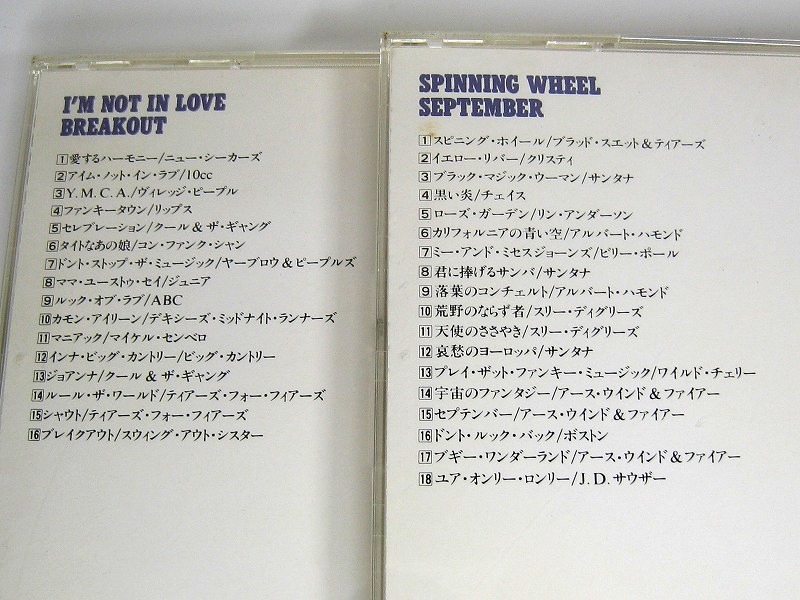 I'M NOT IN LOVE
BREAKOUT
1愛するハーモニー/ニュー・シーカーズ
2アイム・ノット・イン・ラブ/10cc
3Y.M.C.A./ヴィレッジ・ピープル
4ファンキータウン/リップス
5セレブレーション/クール&ザ・ギャング
6タイトなあの娘/コン・ファンク・シャン
7ドント・ストップ・ザ・ミュージック/ヤーブロウ&ピープルズ
8ママ・ユーストゥ・セイ/ジュニア
9ルック・オブ・ラブ/ABC
10カモン・アイリーン/デキシーズ・ミッドナイト・ランナーズ
11マニアック/マイケル・センベロ
12インナ・ビッグ・カントリー/ビッグ・カントリー
13ジョアンナ/クール&ザ・ギャング
14ルール・ザ・ワールド/ティアーズ・フォー・フィアーズ
15シャウト/ティアーズ・フォー・フィアーズ
16ブレイクアウト/スウィング・アウト・シスター
SPINNING WHEEL
SEPTEMBER
1スピニング・ホイール/ブラッド・スエット&ティアーズ
2イエロー・リバー/クリスティ
3ブラック・マジック・ウーマン/サンタナ
4黒い炎/チェイス
5ローズ・ガーデン/リン・アンダーソン
6カリフォルニアの青い空/アルバート・ハモンド
7ミー・アンド・ミセスジョーンズ/ビリー・ポール
8君に捧げるサンバ/サンタナ
9落葉のコンチェルト/アルバート・ハモンド
10荒野のならず者/スリー・ディグリーズ
11天使のささやき/スリー・ディグリーズ
12哀愁のヨーロッパ/サンタナ
13プレイ・ザット・ファンキー・ミュージック/ワイルド・チェリー
14宇宙のファンタジー/アース・ウインド&ファイアー
15セプテンバー/アース・ウインド&ファイアー
16ドント・ルック・バック/ボストン
17ブギー・ワンダーランド/アース・ウインド&ファイアー
18ユア・オンリー・ロンリー/J.D.サウザー